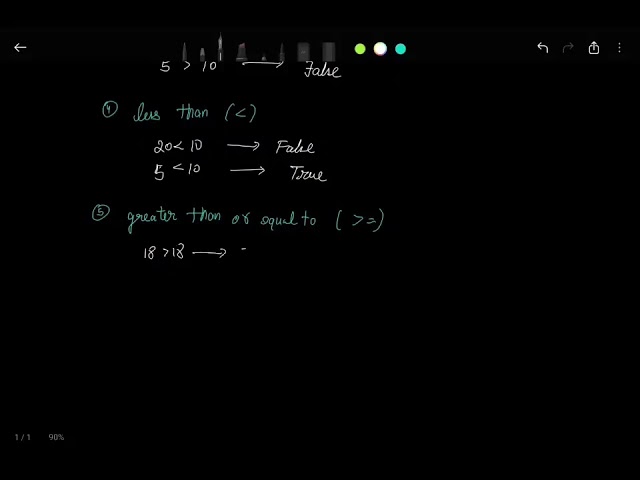 5 > 10 → False
④ less than (<)
20 < 10 → False
5 < 10 → True
⑤ greater than or equal to ( >= )
18 > 18 →
1 / 1 90%